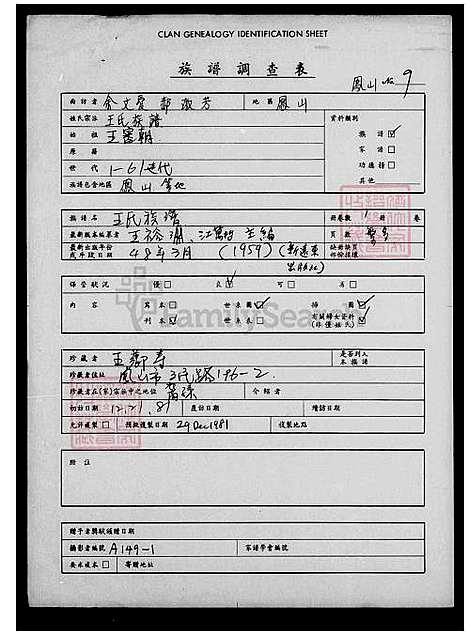 CLAN GENEALOGY IDENTIFICATION SHEET
族譜調查表
鳳山 No 9
面訪者 余文愛 鄭淑芳 地區 鳳山
姓氏宗派 王氏族譜 資料類別
始祖 王審朝 族譜
原籍 家譜
世代 1-61世代 功德榜
涵譜包含地區 鳳山等地 其他
族譜名 王氏族譜 冊卷數 1 冊 卷
最新版本編纂者 王裕淵、江萬哲 主編 頁數
最新出版年份或手段日期 48年3月 (1959) (新遠東出版社) 缺冊缺頁部份描述
保管狀況 優 良 可 差
內容 寫本 世系圖 插圖
刊本 世系表 有關婦女資料(非僅姓氏)
FamilySearch
珍藏者 王 壽 是否列入本族譜
珍藏者住址 鳳山市 三民路196-2
珍藏者在(家)宗族中之地位 介紹者
初訪日期 12.21.81 應訪日期 續訪日期
允許複製 預擬複製日期 29 Dec 1981 複製地點
附註
贈予者開獻頒贈日期
攝影者編號 A149-1 家譜學會編號
要求成本 寄贈地址